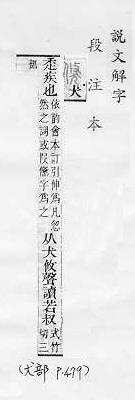 說文解字
段注本
倏 犬
走疾也 依韵會本訂引伸爲凡忽
然之詞或叚儵字爲之
从犬攸聲讀若叔 式竹
切三
部
(犬部 P.479)